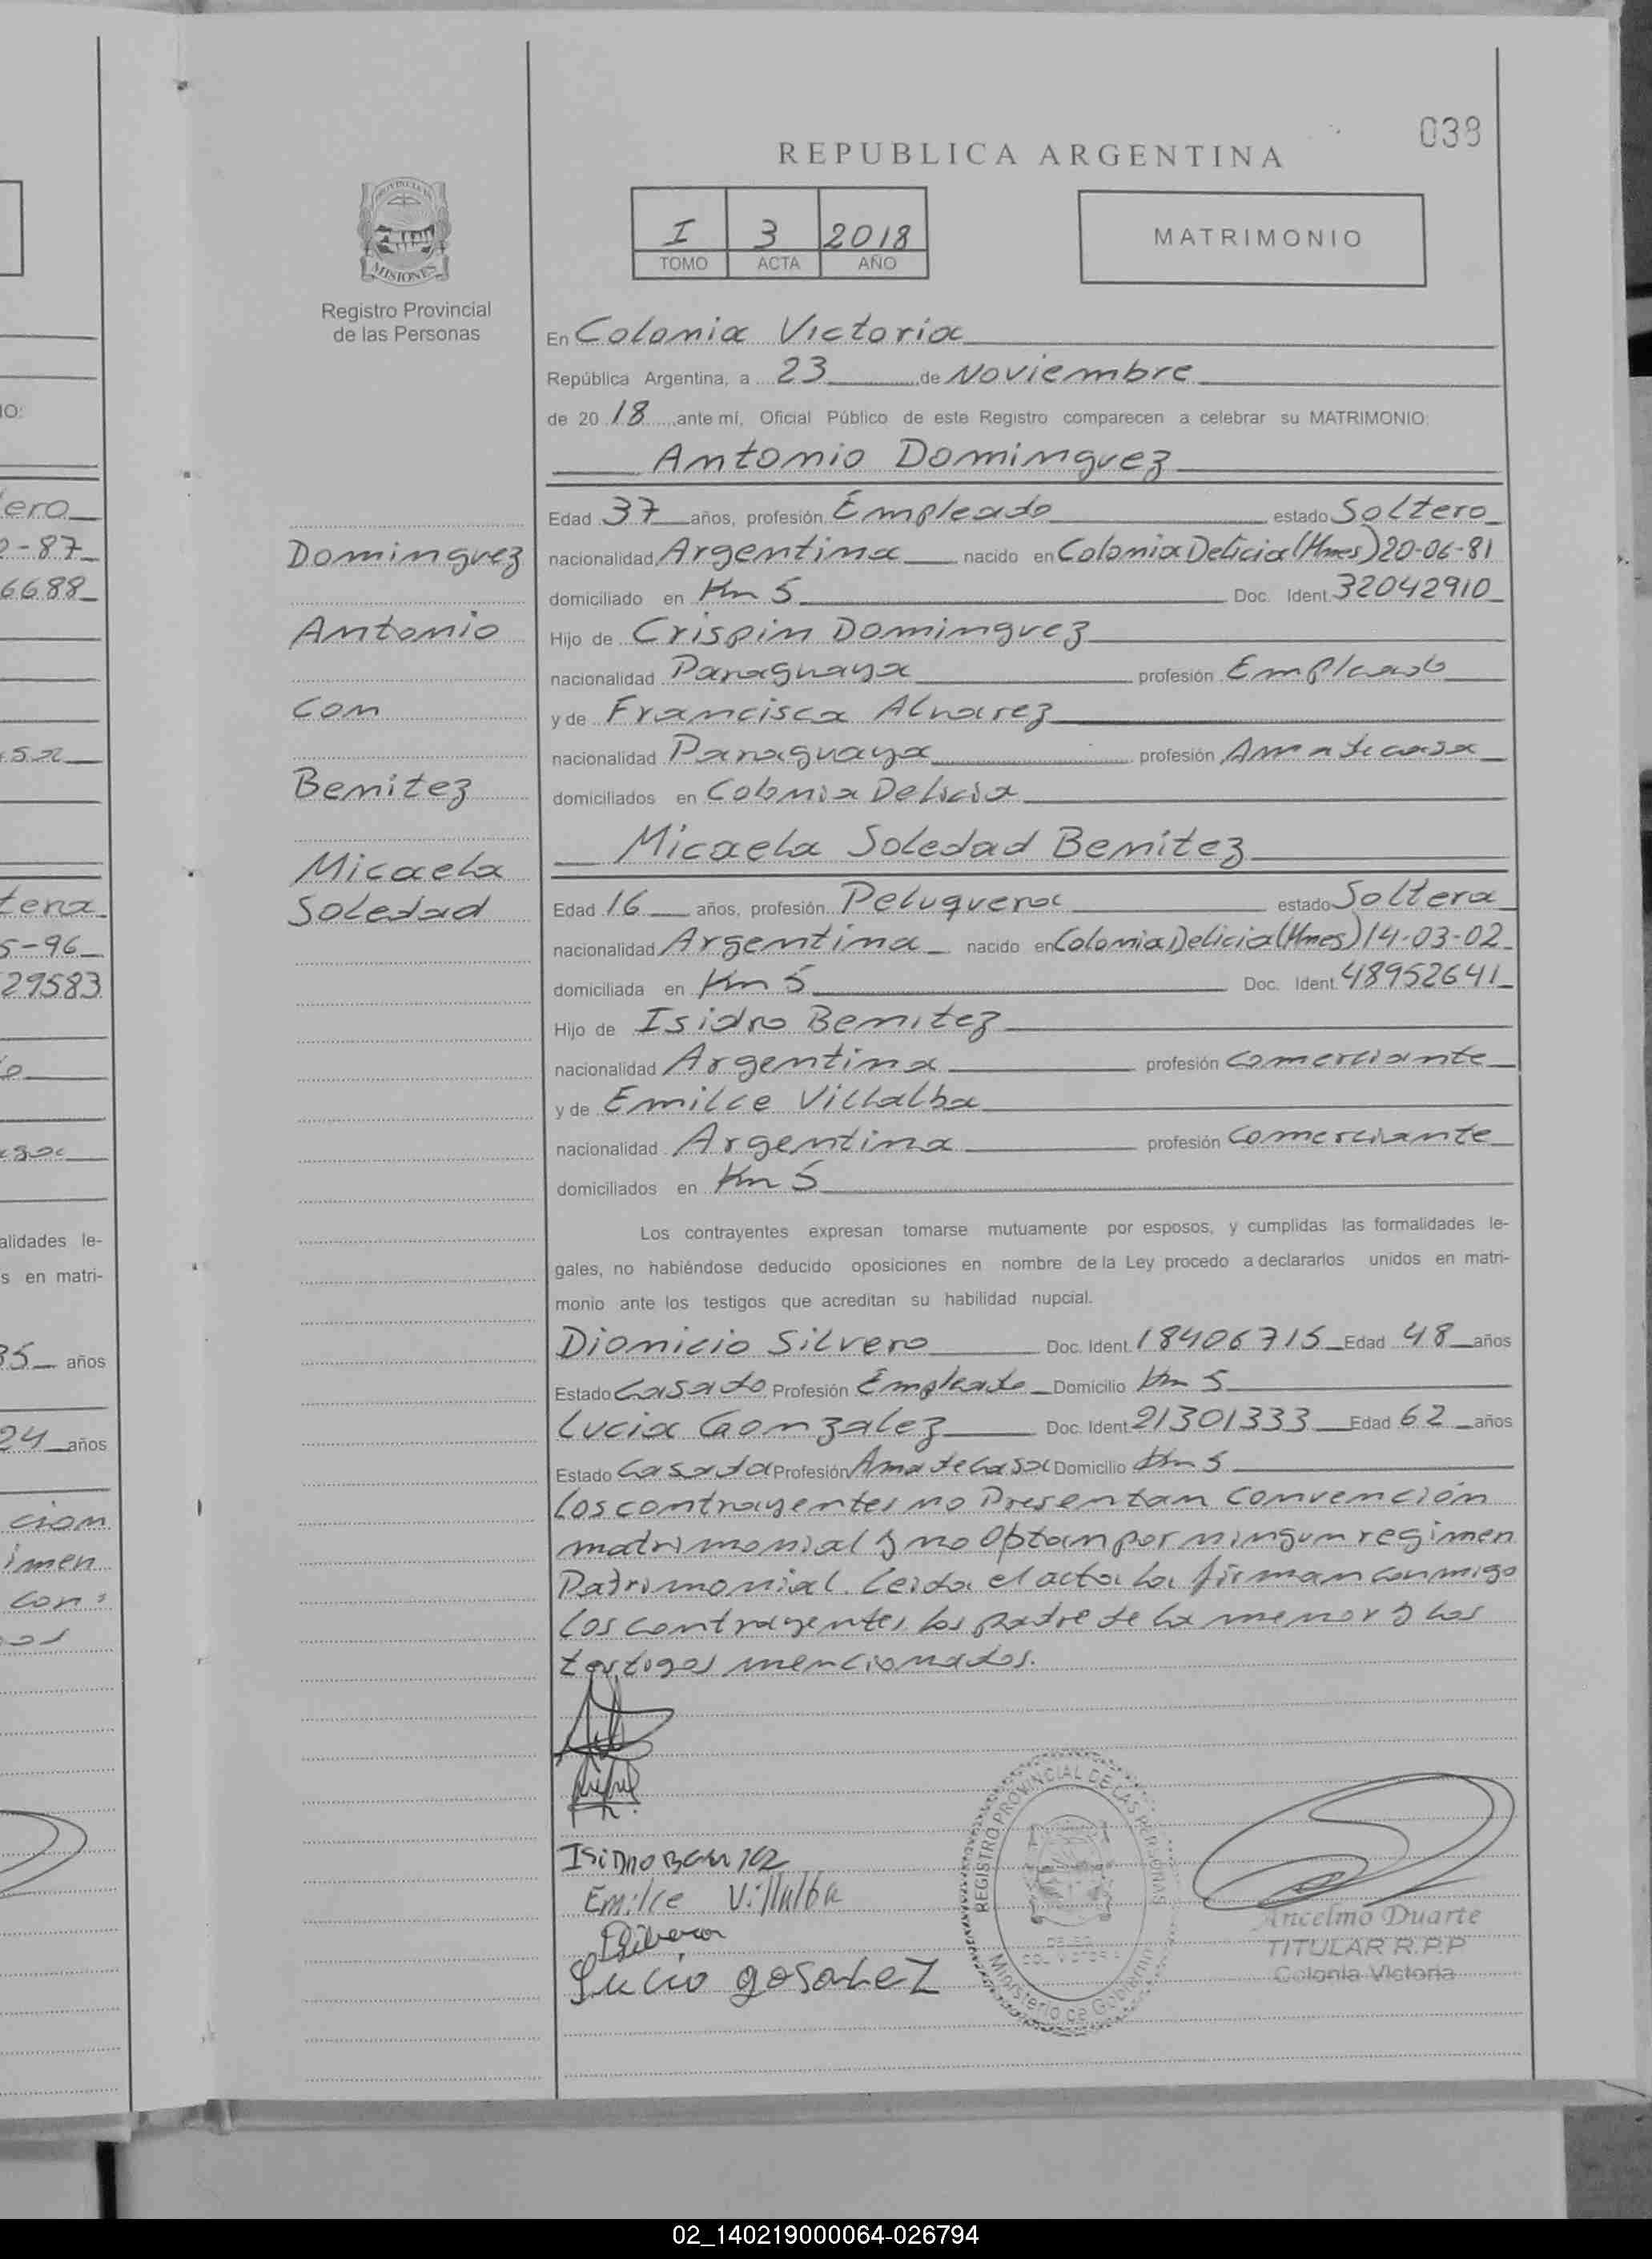 038
REPUBLICA ARGENTINA
I 3 2018
TOMO ACTA AÑO
MATRIMONIO
MISIONES
Registro Provincial
de las Personas
En Colonia Victoria
República Argentina, a 23 de Noviembre
de 2018 ante mí, Oficial Público de este Registro comparecen a celebrar su MATRIMONIO:
Antonio Dominguez
Edad 37 años, profesión Empleado estado Soltero
nacionalidad Argentina nacido en Colonia Delicia (Mnes) 20-06-81
domiciliado en Km 5 Doc. Ident. 32042910
Hijo de Crispin Dominguez
nacionalidad Paraguaya profesión Empleado
y de Francisca Alvarez
nacionalidad Paraguaya profesión Ama de casa
domiciliados en Colonia Delicia
Micaela Soledad Benitez
Edad 16 años, profesión Peluquera estado Soltera
nacionalidad Argentina nacido en Colonia Delicia (Mnes) 14-03-02
domiciliada en Km 5 Doc. Ident. 48952641
Hijo de Isidro Benitez
nacionalidad Argentina profesión comerciante
y de Emilce Villalba
nacionalidad Argentina profesión comerciante
domiciliados en Km 5
Dominguez
Antonio
Con
Benitez
Micaela
Soledad
Los contrayentes expresan tomarse mutuamente por esposos, y cumplidas las formalidades le-
gales, no habiéndose deducido oposiciones en nombre de la Ley procedo a declararlos unidos en matri-
monio ante los testigos que acreditan su habilidad nupcial.
Dionicio Silvero Doc. Ident. 18406715 Edad 48 años
Estado Casado Profesión Empleado Domicilio Km 5
Lucia Gonzalez Doc. Ident. 21301333 Edad 62 años
Estado Casada Profesión Ama de Casa Domicilio Km 5
Los contrayentes no Presentan Convención
matrimonial y no Optan por ningun regimen
Patrimonial. Leida el acta la firman conmigo
los contrayentes los padre de la menor y los
testigos mencionados.
Emilce Villalba
Lucio gosalez
REGISTRO PROVINCIAL DE LAS PERSONAS
Ministerio de Gobierno
Ancelmo Duarte
TITULAR R.P.P
Colonia Victoria
ero
-87
6688
tera
5-96
29583
alidades le-
s en matri-
35 años
24 años
cion
imen
con
02_140219000064-026794